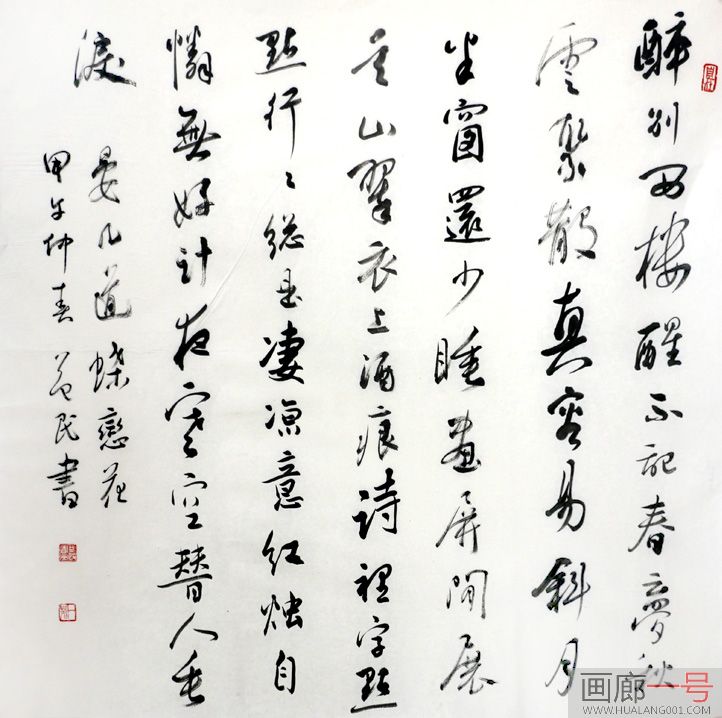 醉别西楼醒不記春夢秋
雲聚散真容易斜月
半窗還少睡畫屏閒展
吴山翠衣上酒痕诗裡字點
點行々総是凄凉意红烛自
憐無好計夜寒空替人垂
淚
晏几道蝶戀花
甲午仲春益民書
画廊一号
WWW.HUALANG001.COM